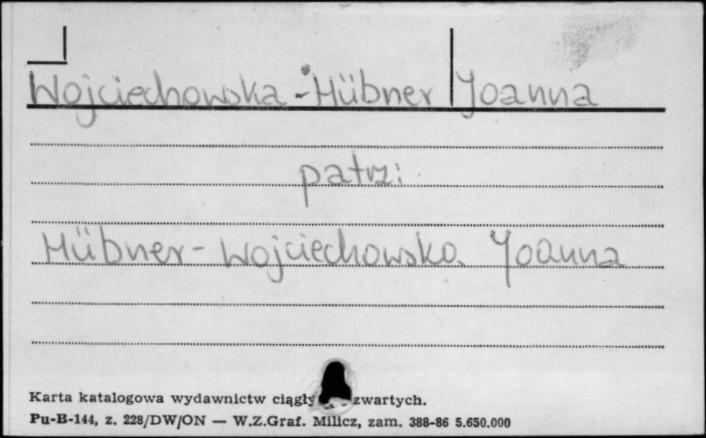 Wojciechowska-Hübner Joanna
patrz:
Hübner-Wojciechowska Joanna
Karta katalogowa wydawnictw zwartych.
Pu-B-144, z. 228/DW/ON — W.Z.Graf. Milicz, zam. 388-86 5.650.000